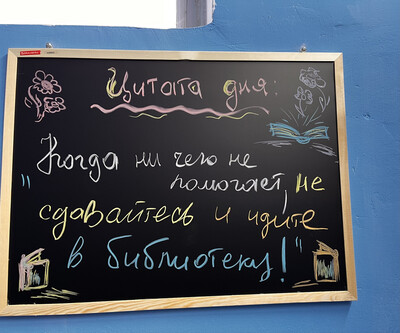 Цитата дня:
Когда ни чего не
" помогает, не
сдавайтесь и идите
в библиотеку!"